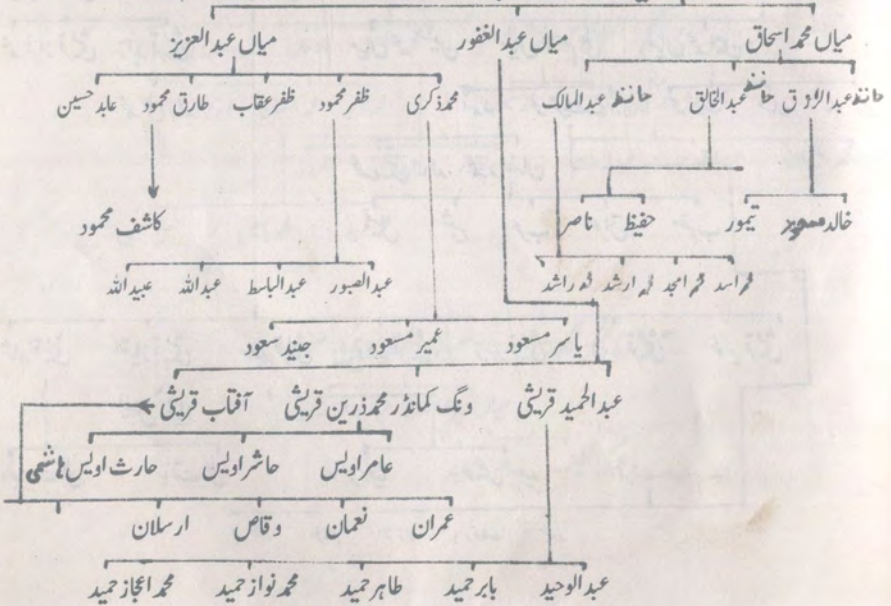 میاں محمد اسحاق میاں عبدالغفور میاں عبدالعزیز
حافظ عبدالرزاق حافظ عبدالخالق حافظ عبدالمالک محمد ذکری ظفر محمود ظفر عقاب طارق محمود عابد حسین
خالد تیمور حفیظ ناصر کاشف محمود
محمد اسد محمد امجد محمد ارشد محمد راشد عبدالصبور عبدالباسط عبداللہ عبیداللہ
یاسر مسعود عمیر مسعود جنید سعود
عبدالحمید قریشی ونگ کمانڈر محمد ذرین قریشی آفتاب قریشی
عامر اویس حاشر اویس حارث اویس ہاشمی
عمران نعمان وقاص ارسلان
عبدالوحید بابر حمید طاہر حمید محمد نواز حمید محمد اعجاز حمید